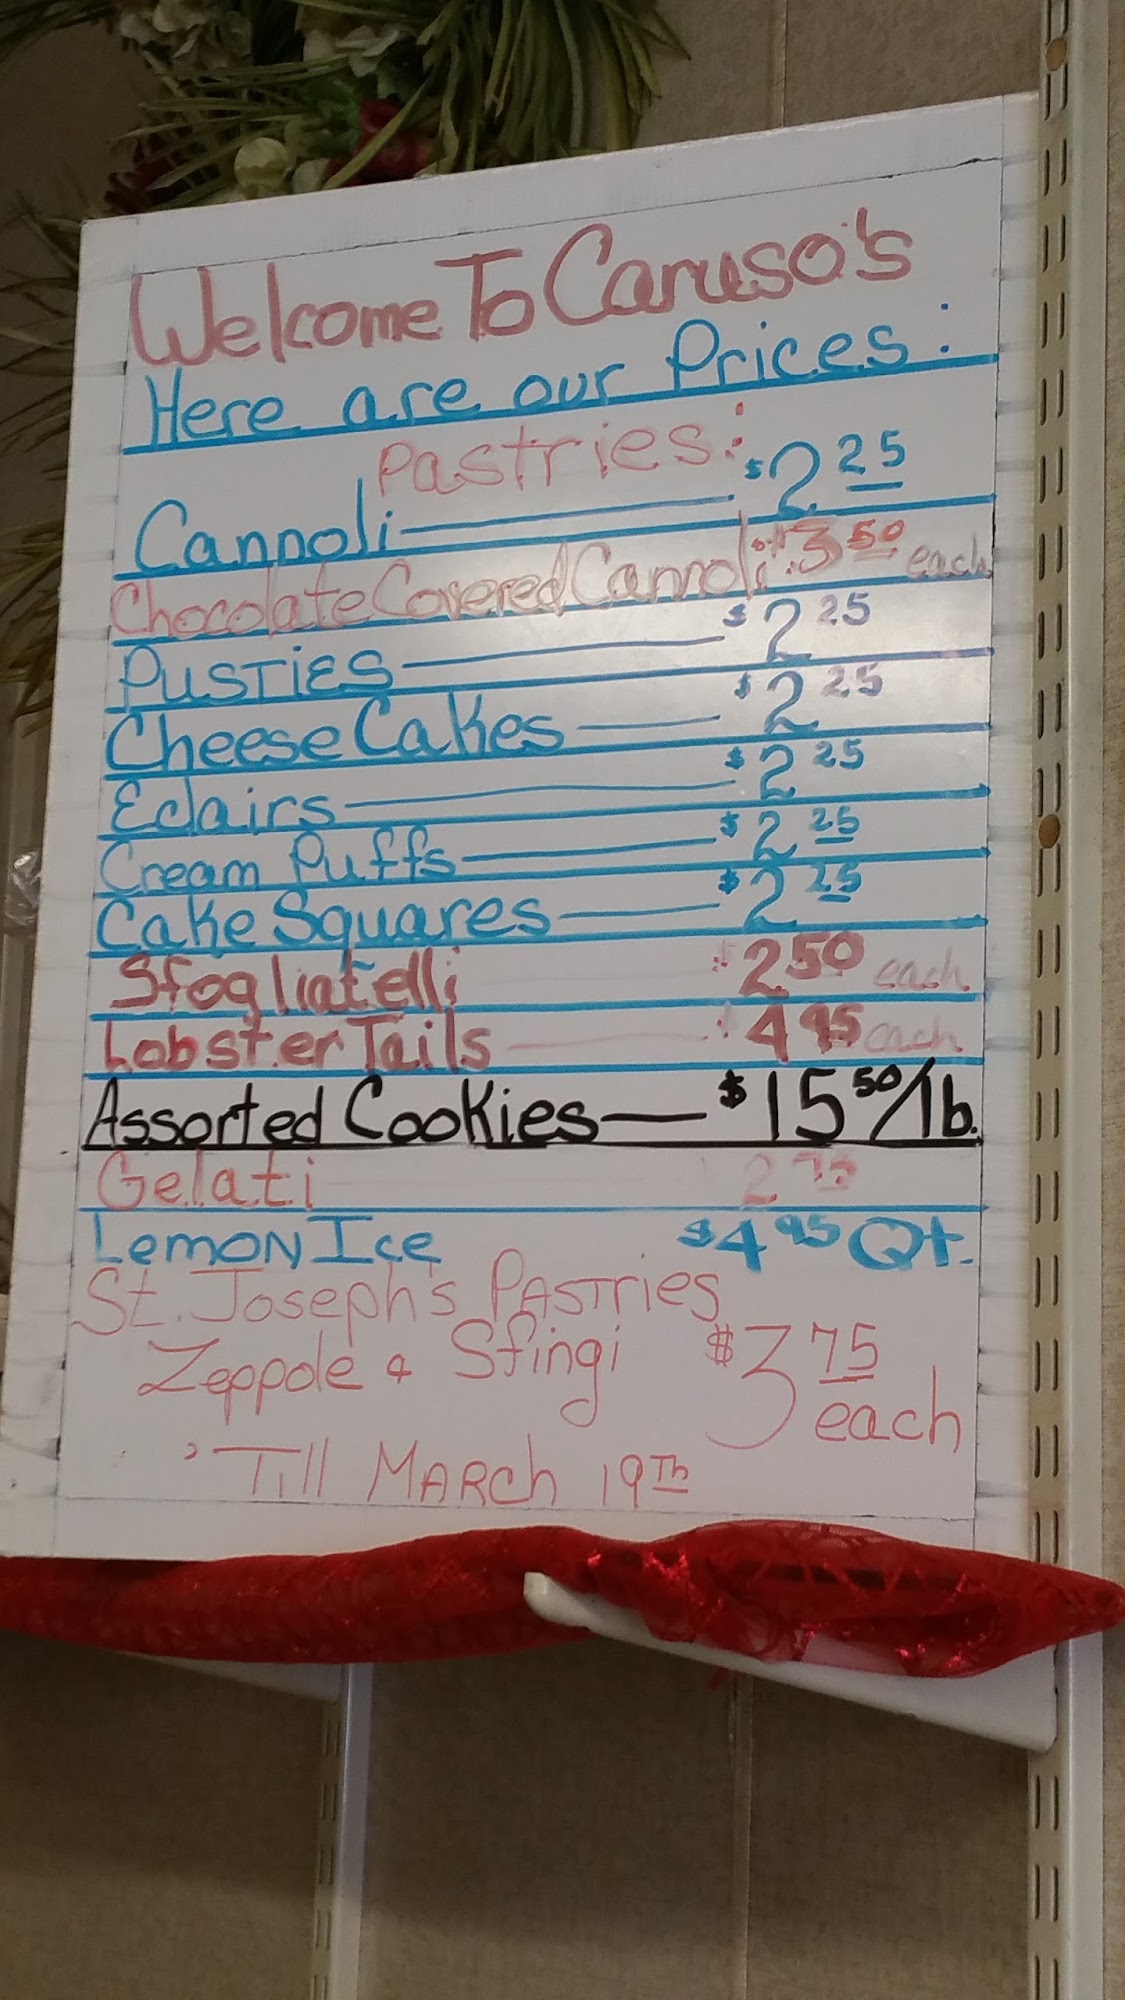 Welcome To Caruso's
Here are our Prices:
Pastries:
Cannoli — $2 25
Chocolate Covered Cannoli: $3 50 each
Pusties — $2 25
Cheese Cakes — $2 25
Eclairs — $2 25
Cream Puffs — $2 25
Cake Squares — $2 25
Sfogliatelli $2 50 each
Lobster Tails — $4 95 each
Assorted Cookies — $15 50/lb.
Gelati 2
Lemon Ice $4 95 Qt.
St. Joseph's Pastries
Zeppole & Sfingi $3 75 each
'Till March 19th